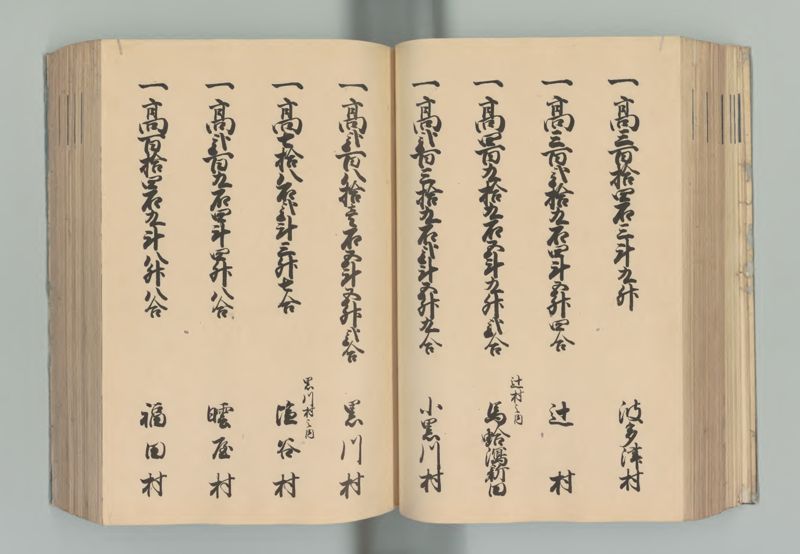 一高三百拾四石三斗九升 波多津村
一高三百弐拾九石四斗五升四合 辻村
一高四百九拾九石五斗九升弐合 辻村之内 馬蛤潟新田
一高弐百三拾九石弐斗五升九合 小黒川村
一高弐百八拾壱石五斗五升弐合 黒川村
一高七拾八石弐斗三升七合 黒川村之内 塩谷村
一高弐百九石四斗四升八合 屋村
一高百拾四石九斗八升八合 福田村